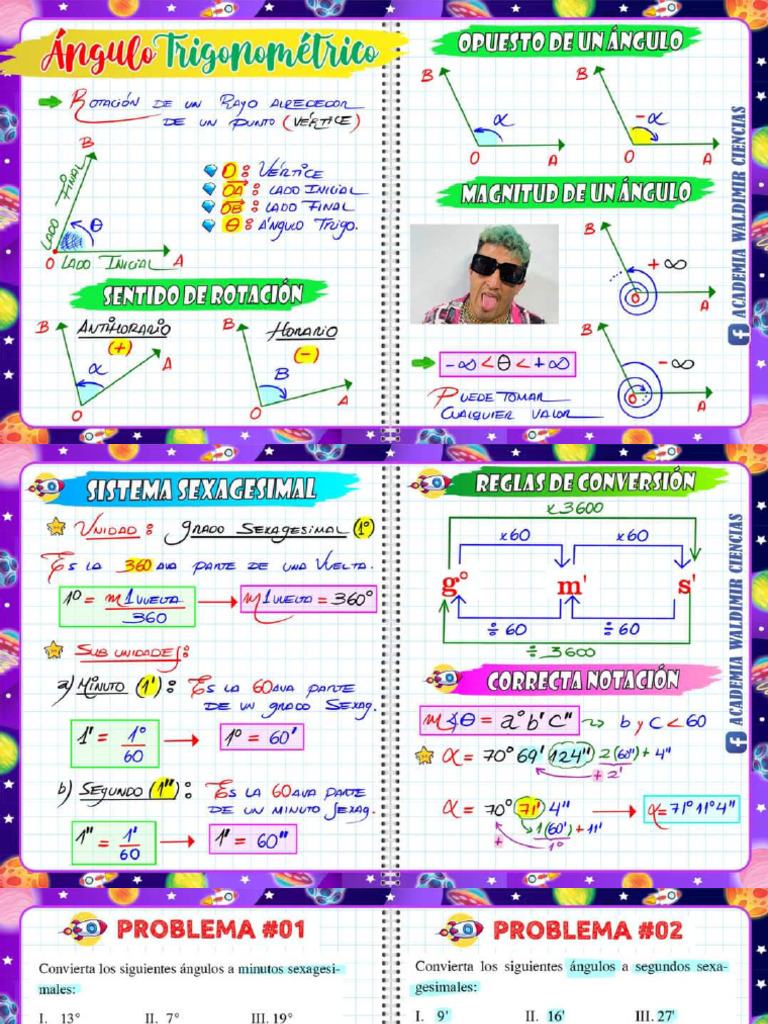 Ángulo Trigonométrico
Rotación de un Rayo alrededor
de un punto (vértice)
B
Lado Final
θ
O Lado Inicial A
O : Vértice
OA : Lado Inicial
OB : Lado Final
θ : Ángulo Trigo.
SENTIDO DE ROTACIÓN
B Antihorario
(+)
A
α
O
B Horario
(-)
B
A
O
OPUESTO DE UN ÁNGULO
B
α
O A
B
-α
O A
MAGNITUD DE UN ÁNGULO
B
+∞
O
A
-∞ < θ < +∞
Puede Tomar
Cualquier Valor
B
-∞
O
A
ACADEMIA WALDIMIR CIENCIAS
SISTEMA SEXAGESIMAL
Unidad: grado Sexagesimal (1°)
Es la 360 ava parte de una Vuelta.
1° = m1vuelta/360 → m1vuelta = 360°
Sub unidades:
a) Minuto (1'): Es la 60ava parte
de un grado Sexag.
1' = 1°/60 → 1° = 60'
b) Segundo (1"): Es la 60ava parte
de un minuto Sexag.
1" = 1'/60 → 1' = 60"
REGLAS DE CONVERSIÓN
x 3600
x60 x60
g° m' s'
÷ 60 ÷ 60
÷ 3600
CORRECTA NOTACIÓN
m∢θ = a°b'c" b y c < 60
α = 70°69'124" 2(60")+ 4"
+ 2'
α = 70°71'4" → α=71°11°4"
1(60')+11'
+ 1°
ACADEMIA WALDIMIR CIENCIAS
PROBLEMA #01
Convierta los siguientes ángulos a minutos sexagesi-
males:
I. 13° II. 7° III. 19°
PROBLEMA #02
Convierta los siguientes ángulos a segundos sexa-
gesimales:
I. 9' II. 16' III. 27'